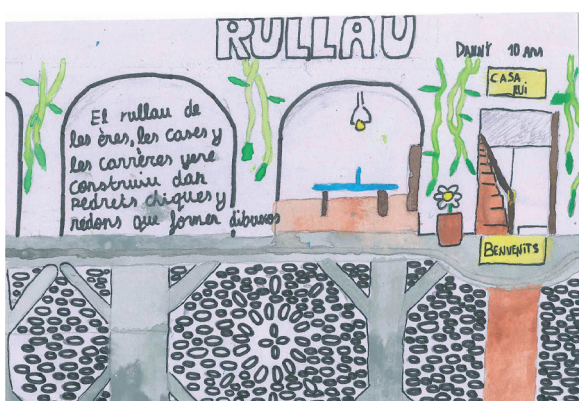 RULLAU
DANNY 10 ANS
CASA
RUI
El rullau de
les ères, les cases y
les carrères yere
construiu dan
pedrets chiques y
redons que formen dibuxos
BENVENITS